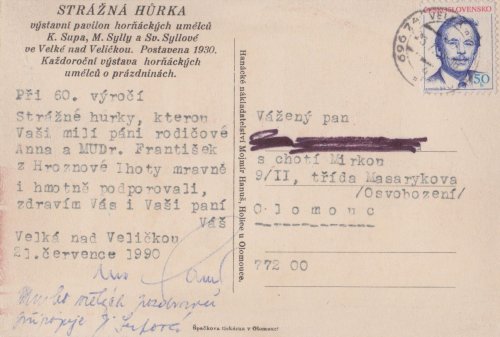 STRÁŽNÁ HŮRKA
výstavní pavilon horňáckých umělců
K. Supa, M. Sylly a Sv. Syllové
ve Velké nad Veličkou. Postavena 1930.
Každoroční výstava horňáckých
umělců o prázdninách.
Při 60. výročí
Strážné hurky, kterou
Vaši milí páni rodičové
Anna a MUDr. František
z Hroznové Lhoty mravně
i hmotně podporovali,
zdravím Vás i Vaši paní
Váš
Velká nad Veličkou
21.července 1990
Mnoho
Hanácké nakladatelství Mojmír Hanuš, Holice u Olomouce.
Špačkova tiskárna v Olomouci
696 74 VEL
ČESKOSLOVENSKO
50
Vážený pan
s chotí Mirkou
9/II, třída Masarykova
/Osvobození/
Olomouc
772 00